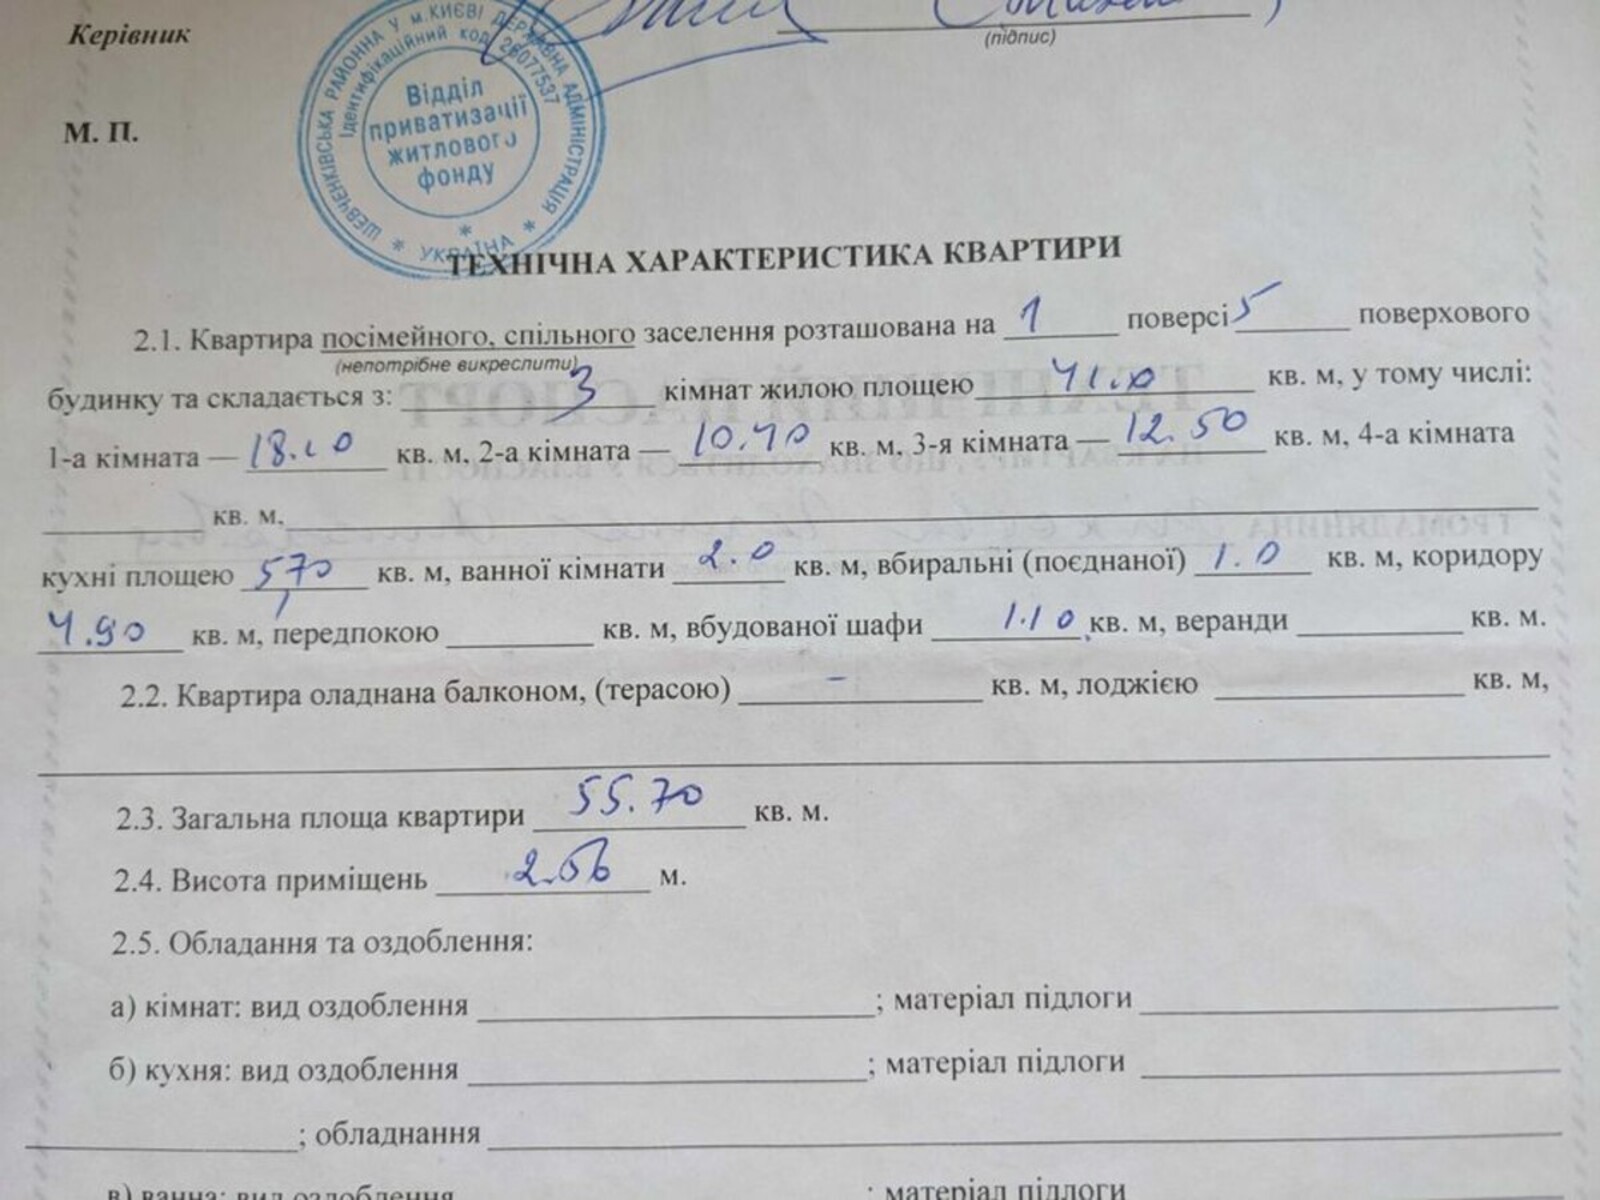 Керівник
(підпис)
М. П.
ШЕВЧЕНКІВСЬКА РАЙОННА У м.КИЄВІ ДЕРЖАВНА АДМІНІСТРАЦІЯ * УКРАЇНА *
Ідентифікаційний код 26077537
Відділ
приватизації
житлового
фонду
ТЕХНІЧНА ХАРАКТЕРИСТИКА КВАРТИРИ
2.1. Квартира посімейного, спільного заселення розташована на 1 поверсі 5 поверхового
(непотрібне викреслити)
будинку та складається з: 3 кімнат жилою площею 41.0 кв. м, у тому числі:
1-а кімната — 18.10 кв. м, 2-а кімната — 10.40 кв. м, 3-я кімната — 12.50 кв. м, 4-а кімната
кв. м,
кухні площею 5,70 кв. м, ванної кімнати 2.0 кв. м, вбиральні (поєднаної) 1.0 кв. м, коридору
4.90 кв. м, передпокою кв. м, вбудованої шафи 1.10 кв. м, веранди кв. м.
2.2. Квартира оладнана балконом, (терасою) – кв. м, лоджією кв. м,
2.3. Загальна площа квартири 55.70 кв. м.
2.4. Висота приміщень 2.56 м.
2.5. Обладання та оздоблення:
а) кімнат: вид оздоблення ; матеріал підлоги
б) кухня: вид оздоблення ; матеріал підлоги
; обладнання
в) ванна: вид оздоблення ; матеріал підлоги